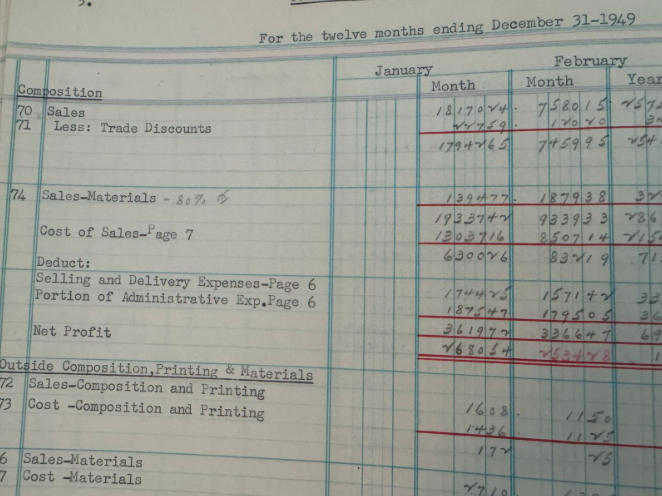 For the twelve months ending December 31-1949
January February
Month Month Year
Composition
70 Sales 1817024 758015
71 Less: Trade Discounts 22759 12020
1794265 745995
74 Sales-Materials - 80% 139477 187938
1933742 933933
Cost of Sales-Page 7 1303716 850714
630026 83219
Deduct:
Selling and Delivery Expenses-Page 6 174425 157142
Portion of Administrative Exp.Page 6 187547 179505
361972 336647
Net Profit 268054 253428
Outside Composition,Printing & Materials
72 Sales-Composition and Printing 1608 1150
73 Cost -Composition and Printing 1436 1125
172 25
6 Sales-Materials
7 Cost -Materials